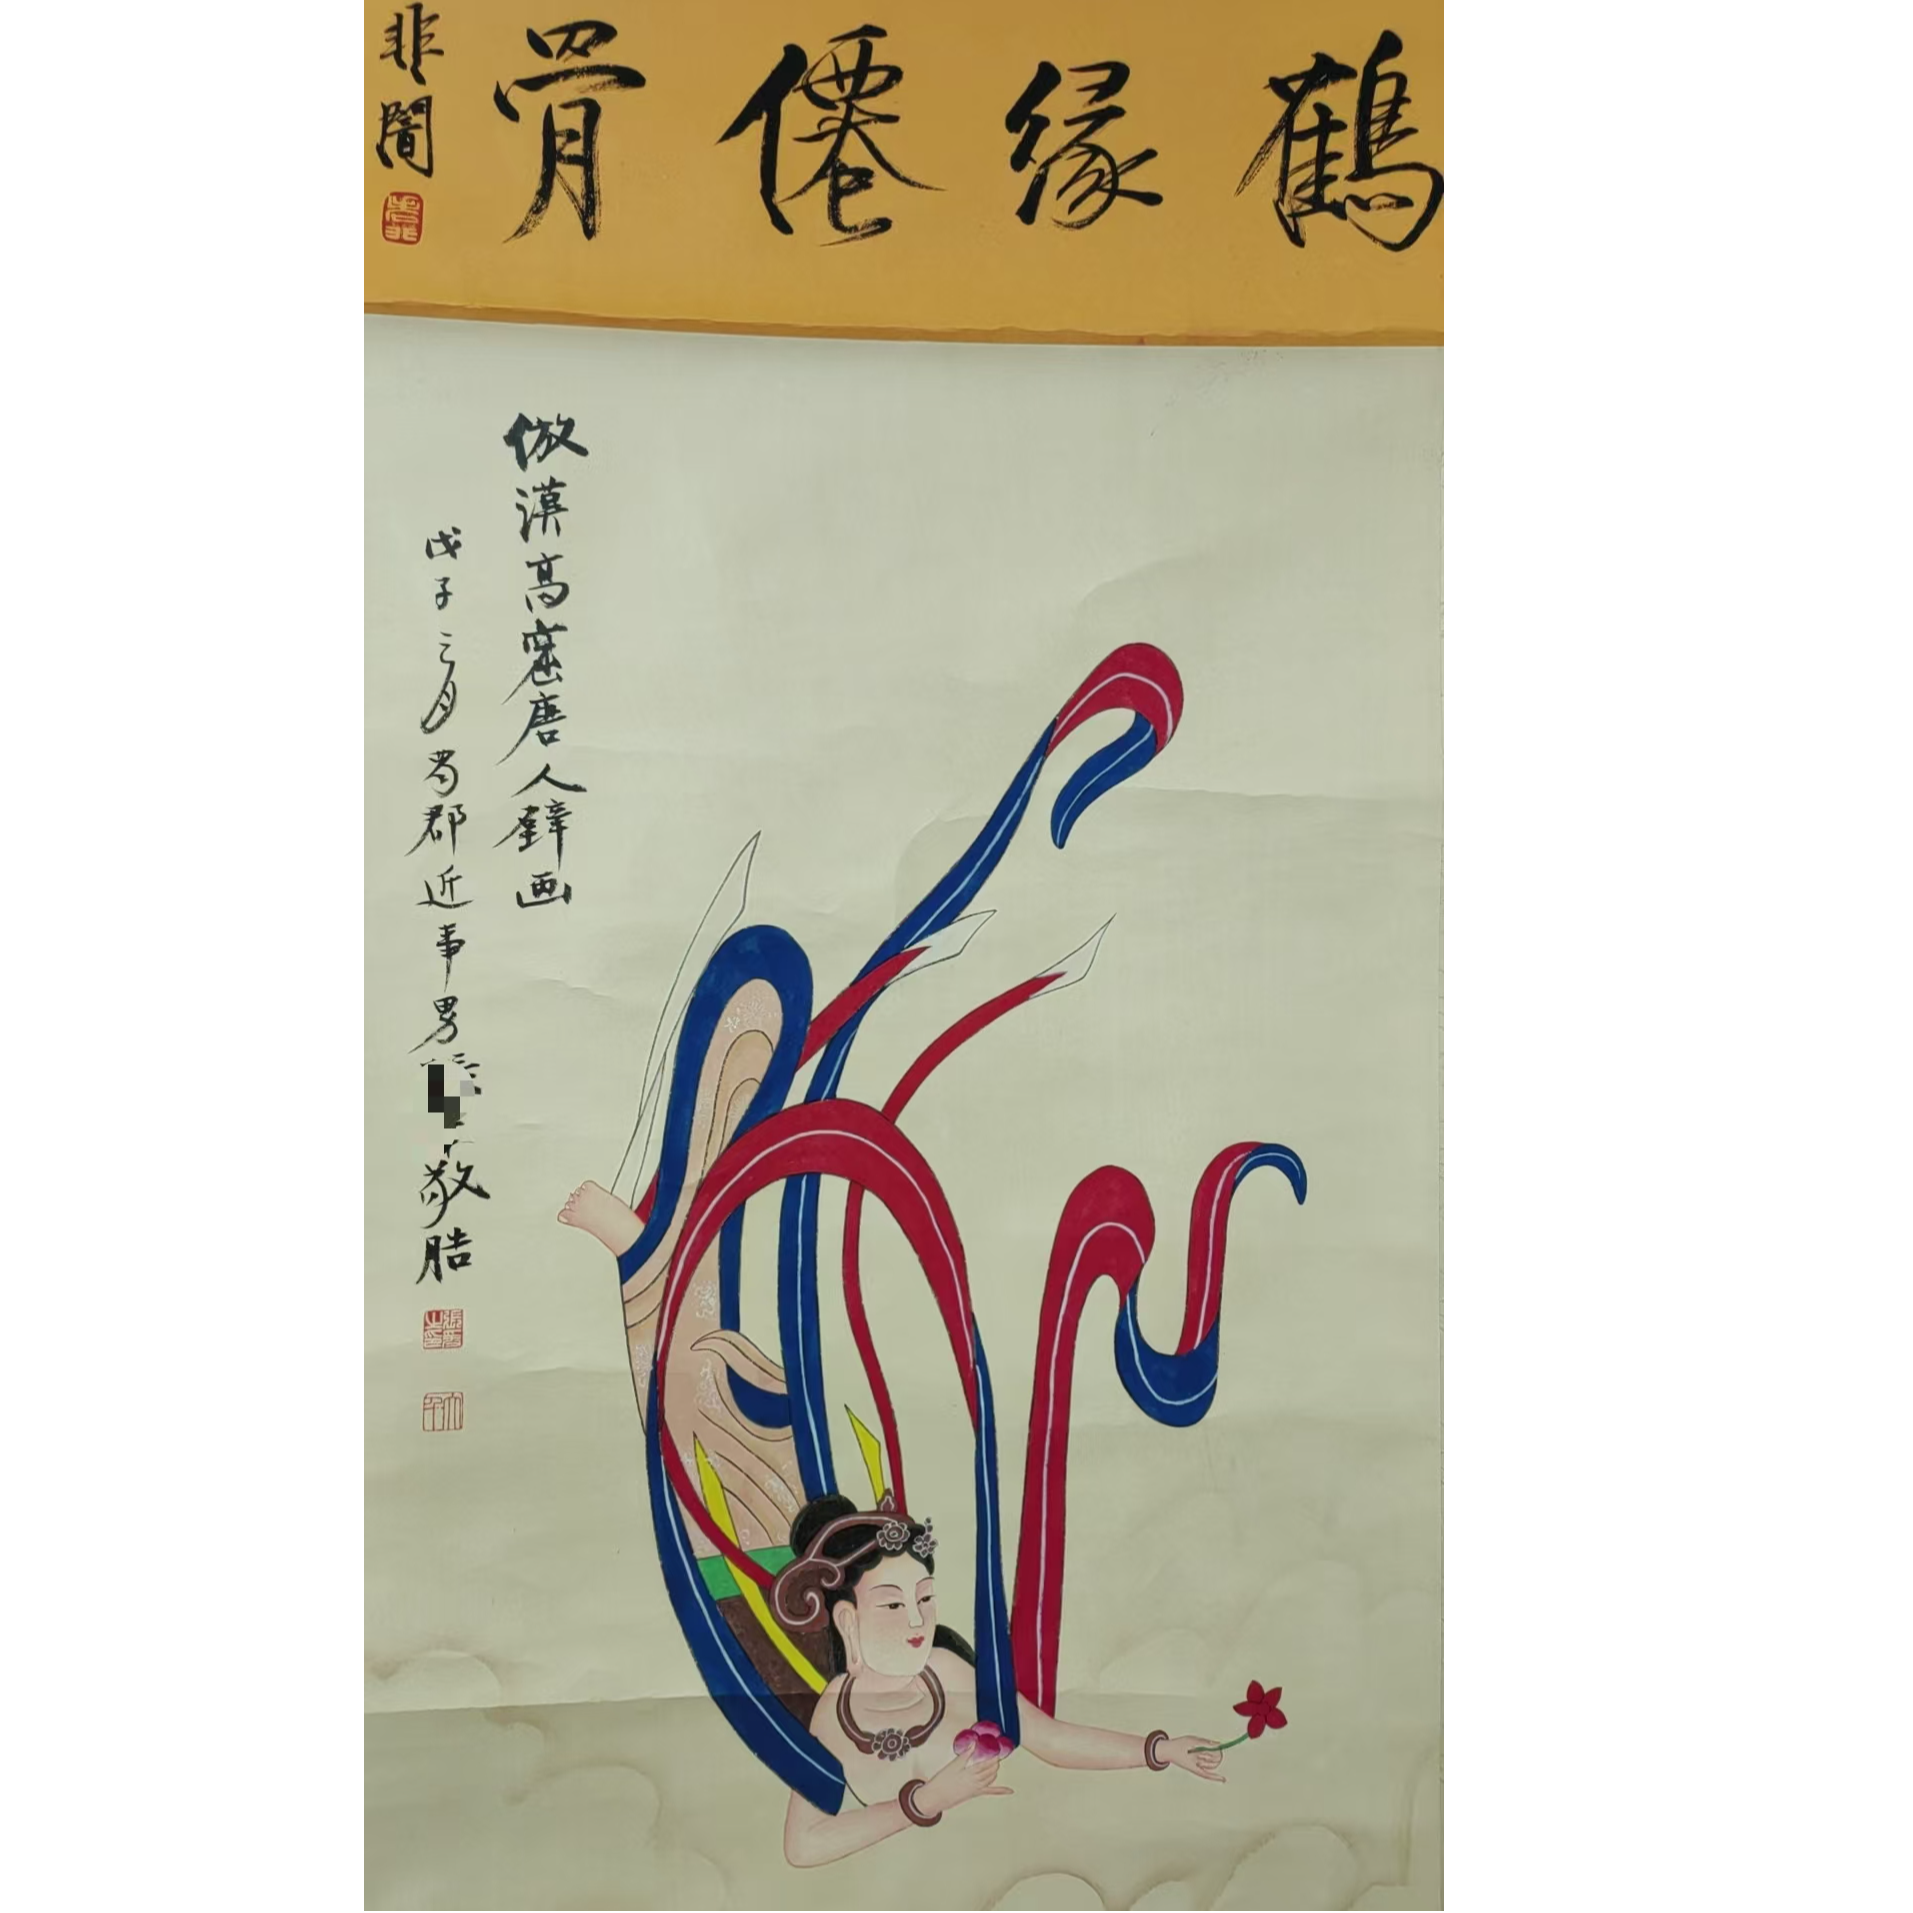 鶴緣僊骨
非闇
倣漠高窟唐人壁画
戊子三月蜀郡近事男
敬